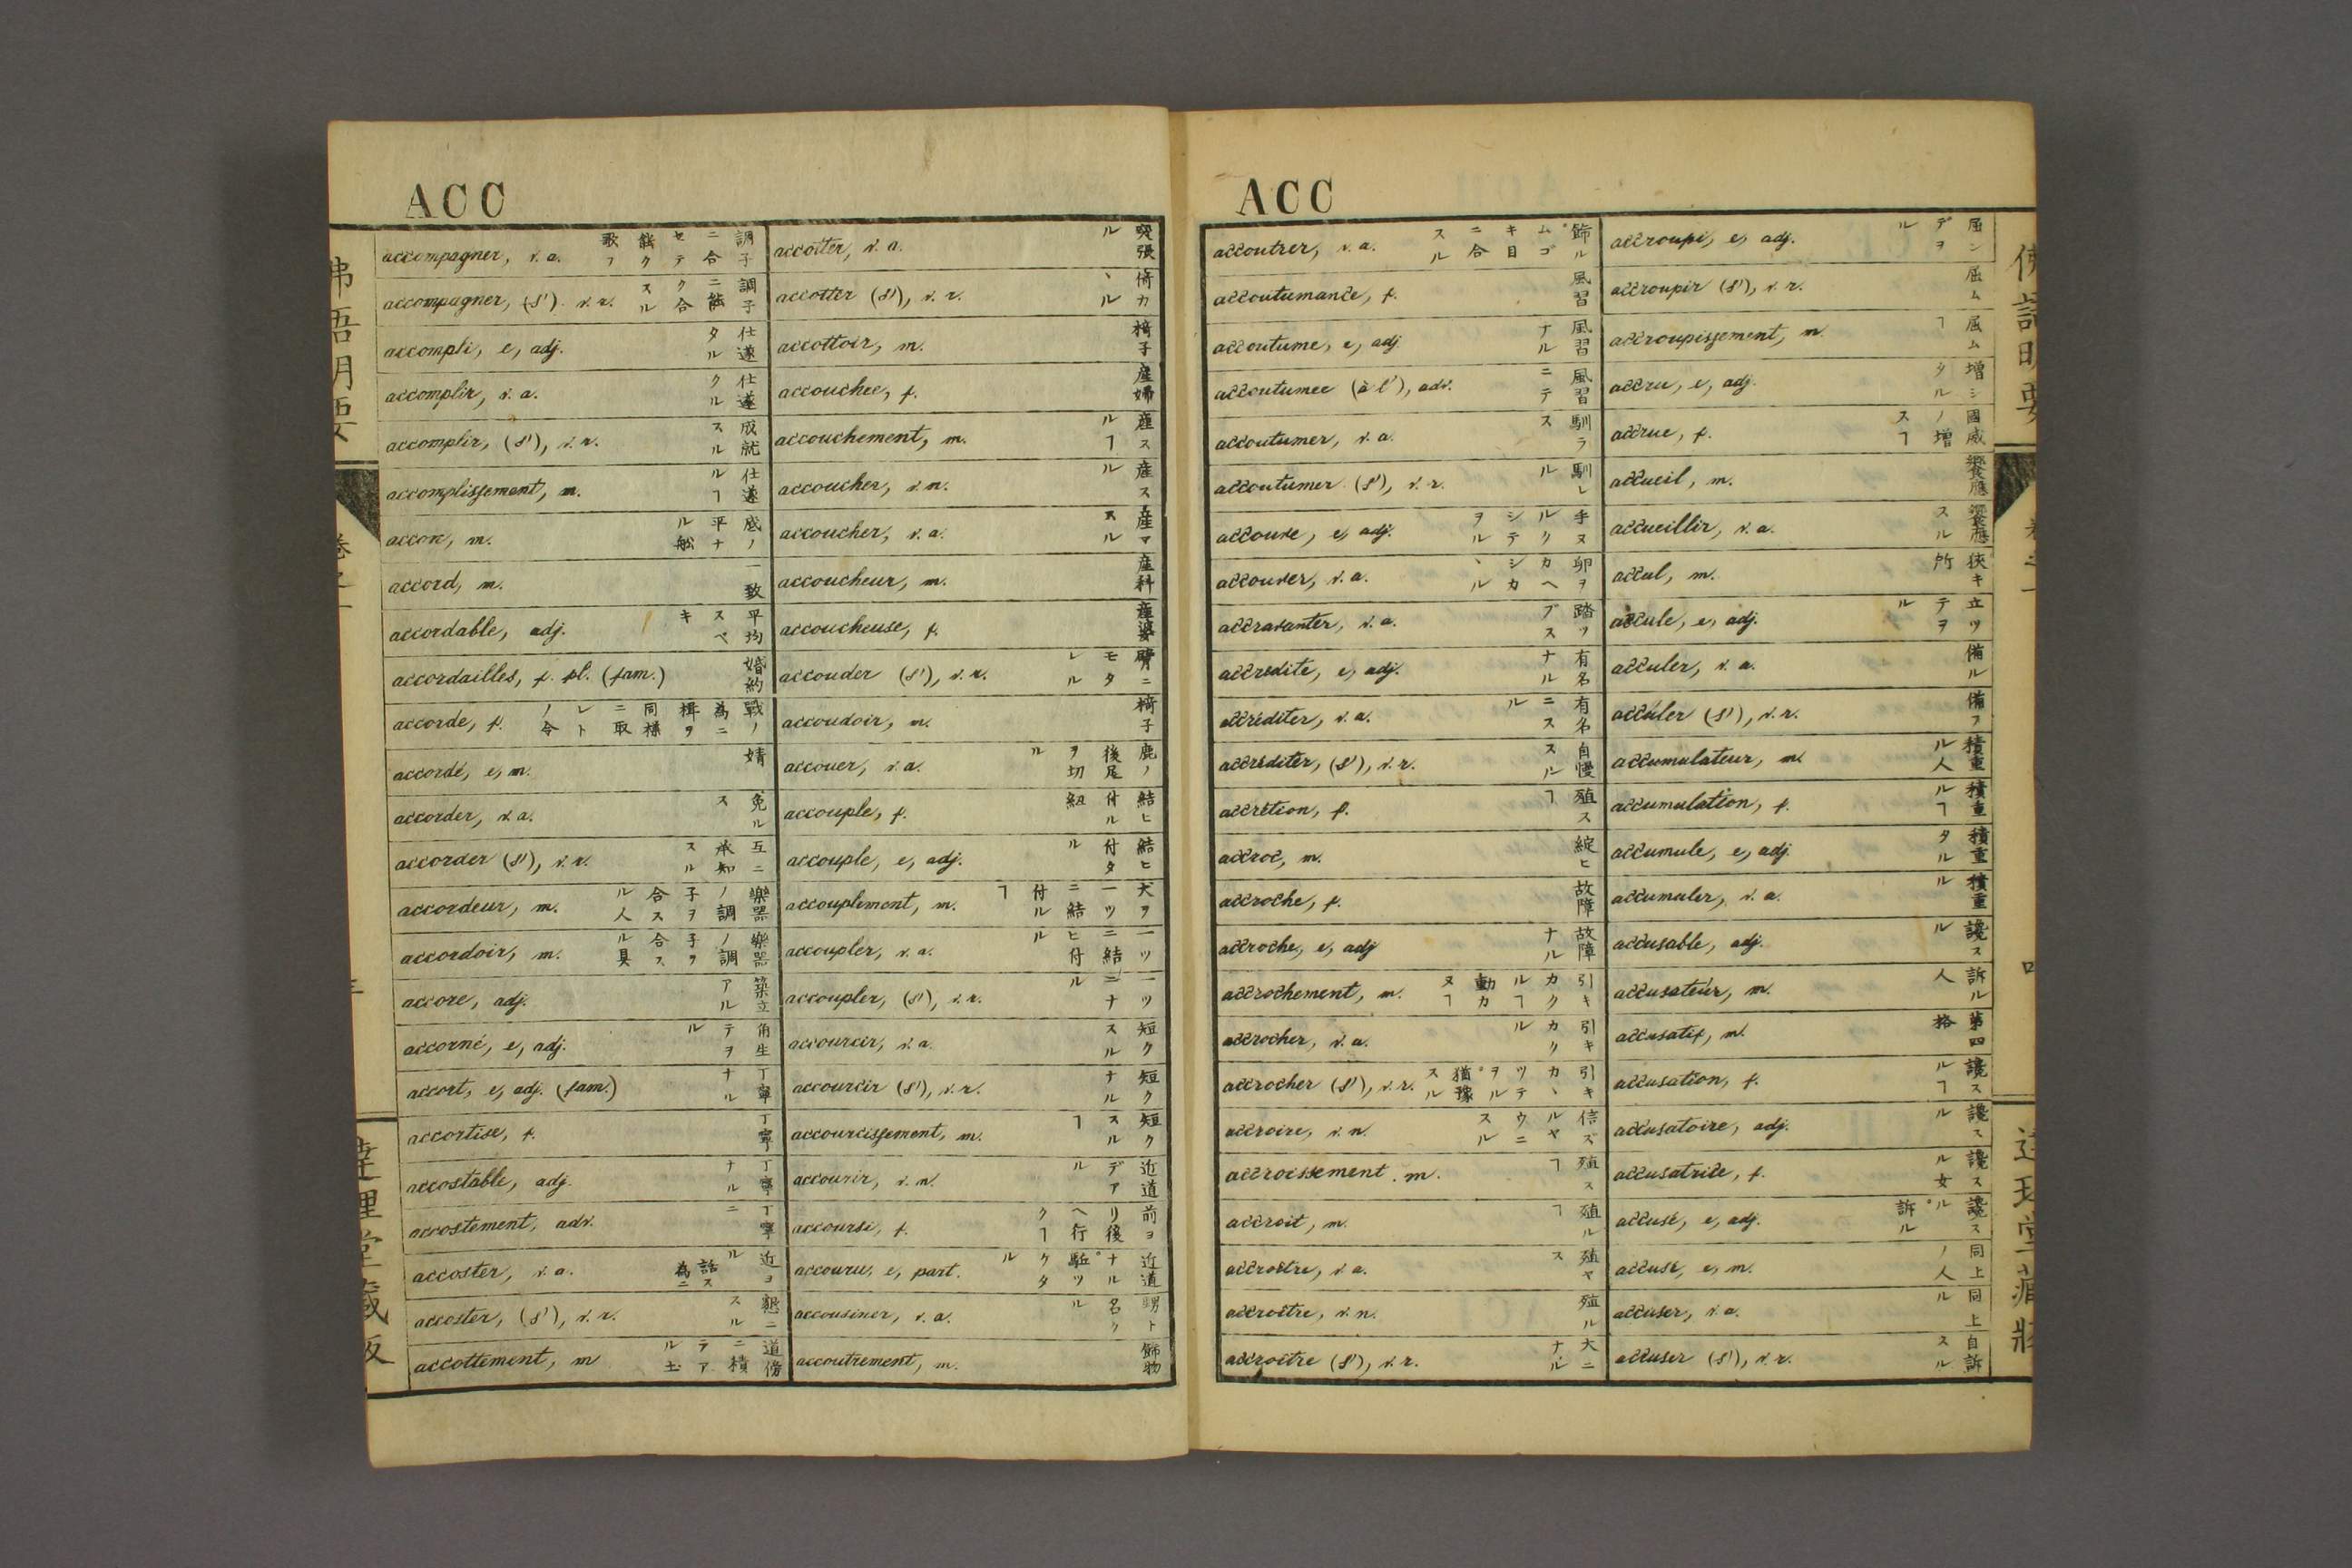 ACC
accompagner, v. a. 調子ニ合セテ能ク歌フ
accompagner, (s') v. r. 調子ニ能ク合スル
accompli, e, adj. 仕遂タル
accomplir, v. a. 仕遂クル
accomplir, (s'), v. r. 成就スル
accomplissement, m. 仕遂ルヿ
accon, m. 底ノ平ナル舩
accord, m. 一致
accordable, adj. 平均スベキ
accordailles, f. pl. (fam.) 婚約
accorde, f. 戰ノ為ニ楫ヲ同様ニ取レトノ令
accordé, e, m.
accorder, v. a. 免ルス
accorder (s'), v. r. 互ニ承知スル
accordeur, m. 樂器ノ調子ヲ合スル人
accordoir, m. 樂器ノ調子ヲ合スル具
accore, adj. 築立アル
accorné, e, adj. 角生テヲル
accort, e, adj. (fam.) 丁寧ナル
accortise, f. 丁寧
accostable, adj. 丁寧ナル
accostement, adv. 丁寧ニ
accoster, v. a. 近ヨル 話ス為ニ
accoster, (s'), v. r. 懇ニスル
accottement, m 道傍ニ積テアル土
accotter, v. a. 突張ル
accotter (s'), v. r. 倚カヽル
accottoir, m. 椅子
accouchee, f. 産婦
accouchement, m. 産スルヿ
accoucher, v. n. 産スル
accoucher, v. a. 産マスル
accoucheur, m. 産科
accoucheuse, f. 産婆
accouder (s'), v. r. 臂ニモタレル
accoudoir, m. 椅子
accouer, v. a. 鹿ノ後足ヲ切ル
accouple, f. 結ヒ付ル紐
accouple, e, adj. 結ヒ付タル
accouplement, m. 犬ヲ一ツニ結付ルヿ
accoupler, v. a. 一ツニ結ヒ付ル
accoupler, (s'), v. r. 一ツニナル
accourcir, v. a. 短クスル
accourcir (s'), v. r. 短クナル
accourcissement, m. 短クスルヿ
accourir, v. n. 近道デアル
accourse, f. 前ヨリ後ヘ行クヿ
accouru, e, part. 近道ナル゜駈ツケタル
accousiner, v. a. 甥ト名クル
accoutrement, m. 飾物
ACC
accoutrer, v. a. 飾ル゜ムゴキ目ニ合スル
accoutumance, f. 風習
accoutume, e, adj 風習ナル
accoutumee (à l'), adv. 風習ニテ
accoutumer, v. a. 馴ラス
accoutumer (s'), v. r. 馴レル
accouve, e, adj. 手ヌルクシテヲル
accouver, v. a. 卵ヲカヘシカヽル
accravanter, v. a. 踏ツブス
accredite, e, adj. 有名ナル
accréditer, v. a. 有名ニスル
accréditer, (s'), v. r. 自慢スル
accrétion, f. 殖スヿ
accroc, m. 綻ヒ
accroche, f. 故障
accroche, e, adj 故障ナル
accrochement, m. 引キカクルヿ動カヌヿ
accrocher, v. a. 引キカクル
accrocher (s'), v. r. 引キカヽツテヲル゜猶豫スル
accroire, v. n. 信ズルヤウニスル
accroissement. m. 殖スヿ
accroit, m. 殖ルヿ
accroître, v. a. 殖ヤス
accroître, v. n. 殖ル
accroître (s'), v. r. 大ニナル
accroupi, e, adj. 屈ンデヲル
accroupir (s'), v. r. 屈ム
accroupissement, m 屈ムヿ
accru, e, adj. 増シタル
accrue, f. 國威ノ増スヿ
accueil, m. 饗應
accueillir, v. a. 饗應スル
accul, m. 狹キ所
accule, e, adj. 立ツテヲル
acculer, v. a. 備ル
acculer (s'), v. r. 備フ
accumulateur, m. 積重ル人
accumulation, f. 積重ルヿ
accumule, e, adj. 積重タル
accumuler, v. a. 積重ル
accusable, adj. 讒スル
accusateur, m. 訴ル人
accusatif, m. 第四格
accusation, f. 讒スルヿ
accusatoire, adj. 讒スル
accusatrice, f. 讒スル女
accusé, e, adj. 讒スル゜訴ル
accusé, e, m. 同上ノ人
accuser, v. a. 同上ル
accuser (s'), v. r. 自訴スル